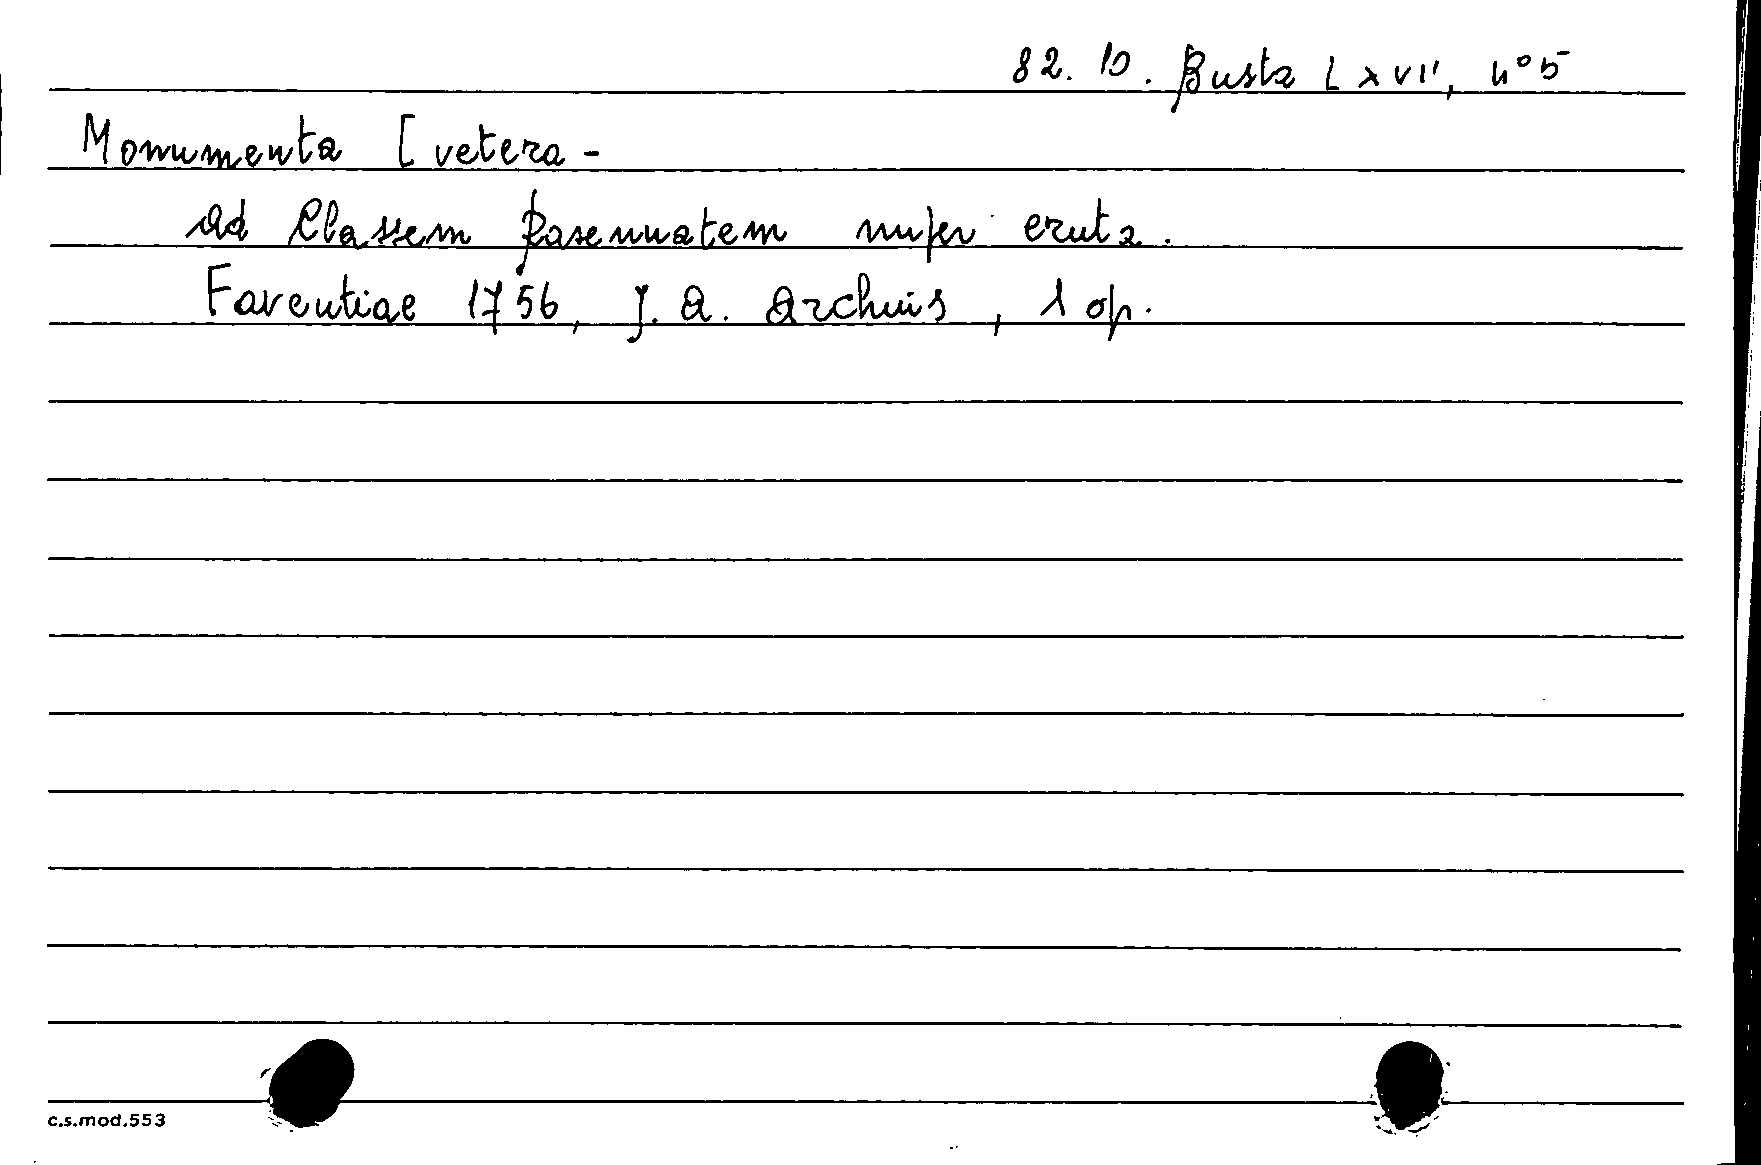 82. 10. Busta LXVII, n° 5
Monumenta [vetera -
ad Classem Ravennatem nuper eruta.
Faventiae 1756, J. A. Archiis, 1 op.
c.s.mod.553